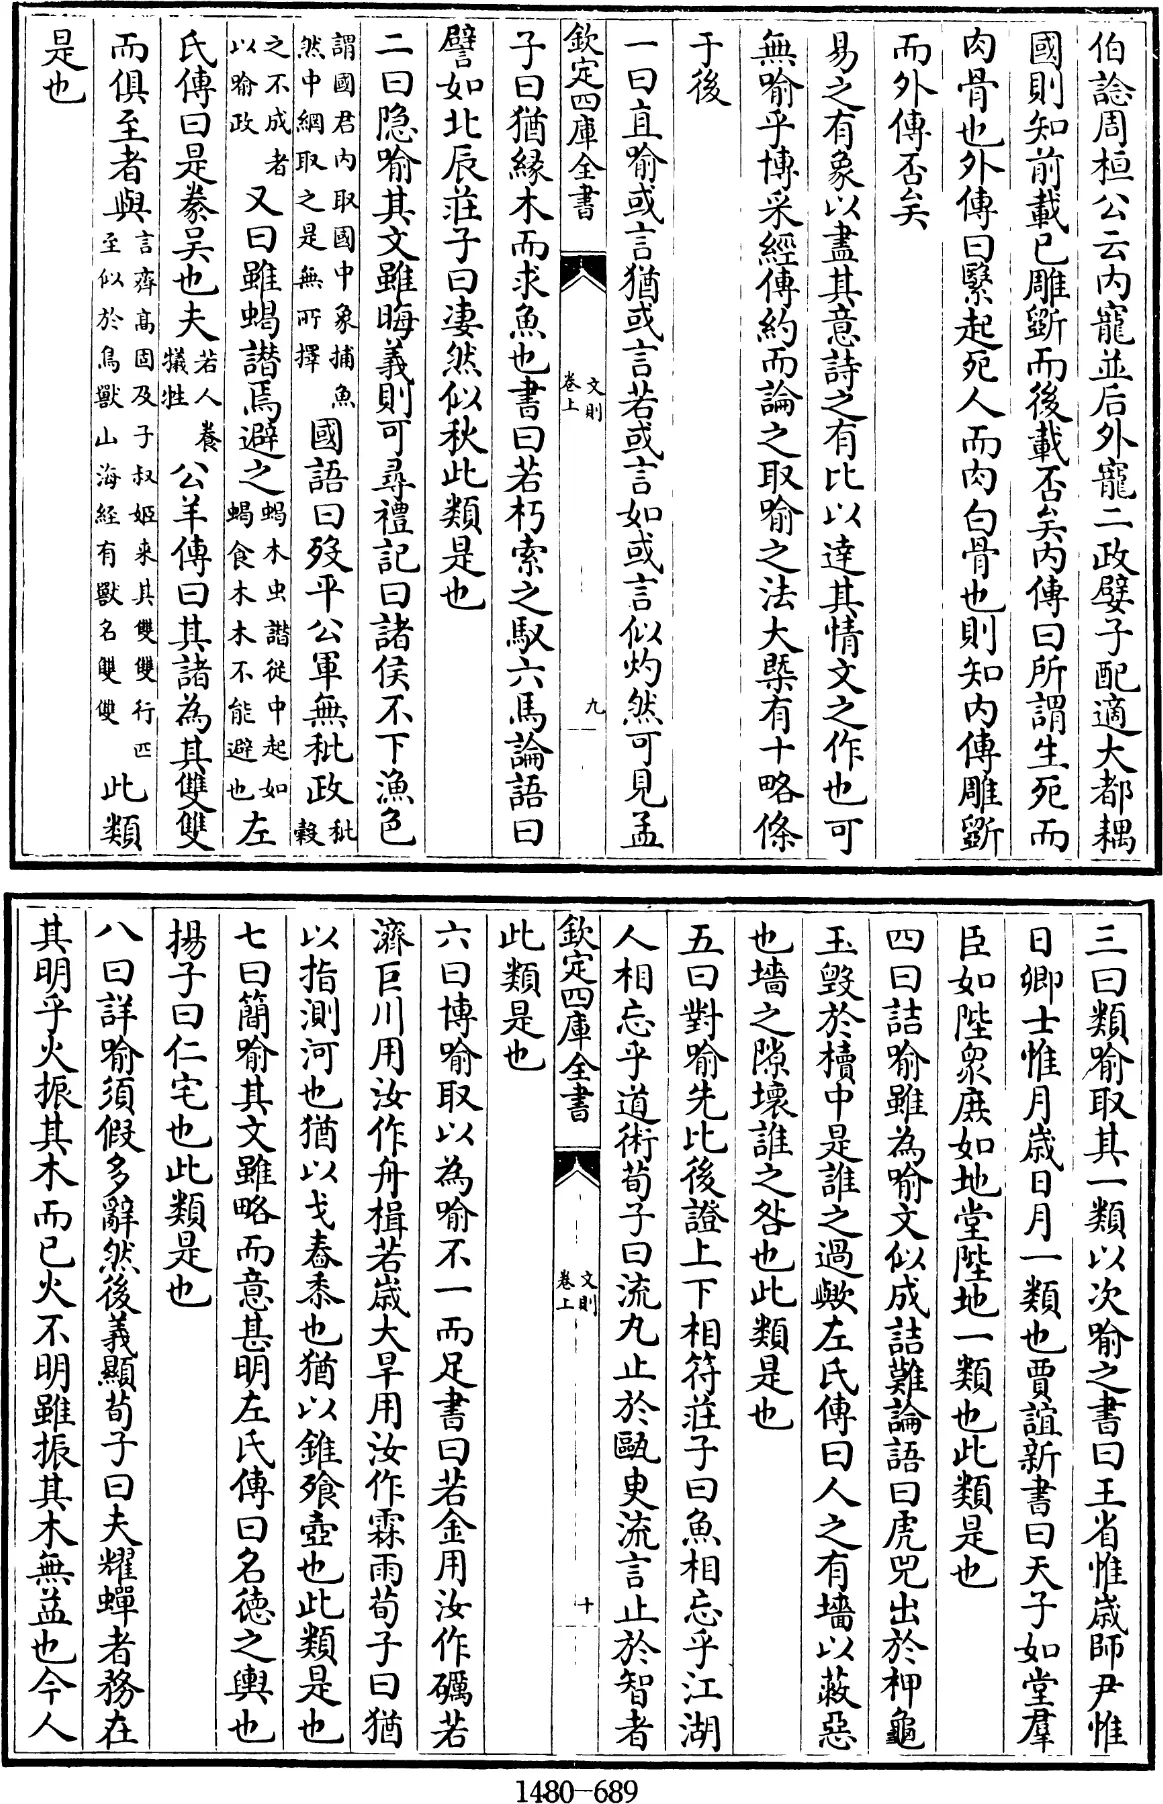 伯諗周桓公云内寵並后外寵二政嬖子配適大都耦
國則知前載已雕斵而後載否矣内傳曰所謂生死而
肉骨也外傳曰繄起死人而肉白骨也則知内傳雕斵
而外傳否矣
易之有象以盡其意詩之有比以達其情文之作也可
無喻乎博采經傳約而論之取喻之法大槩有十略條
于後
一曰直喻或言猶或言若或言如或言似灼然可見孟
欽定四庫全書
文則
卷上
九
子曰猶縁木而求魚也書曰若朽索之馭六馬論語曰
譬如北辰莊子曰凄然似秋此類是也
二曰隐喻其文雖晦義則可尋禮記曰諸侯不下漁色
謂國君内取國中象捕魚
然中網取之是無所擇
國語曰殁平公軍無秕政
秕
穀
之不成者
以喻政
又曰雖蝎譖焉避之
蝎木虫譖從中起如
蝎食木木不能避也
左
氏傳曰是豢吴也夫
若人養
犠牲
公羊傳曰其諸為其雙雙
而俱至者與
言齊高固及子叔姬来其雙雙行匹
至似於鳥獸山海経有獸名雙雙
此類
是也
三曰類喻取其一類以次喻之書曰王省惟歳師尹惟
日卿士惟月歳日月一類也賈誼新書曰天子如堂羣
臣如陛衆庶如地堂陛地一類也此類是也
四曰詰喻雖為喻文似成詰難論語曰虎兕出於柙龜
玉毀於櫝中是誰之過歟左氏傳曰人之有墻以蔽惡
也墻之隙壞誰之咎也此類是也
五曰對喻先比後證上下相符莊子曰魚相忘乎江湖
人相忘乎道術荀子曰流丸止於甌臾流言止於智者
欽定四庫全書
文則
卷上
十
此類是也
六曰博喻取以為喻不一而足書曰若金用汝作礪若
濟巨川用汝作舟楫若歳大旱用汝作霖雨荀子曰猶
以指測河也猶以戈舂黍也猶以錐飱壺也此類是也
七曰簡喻其文雖略而意甚明左氏傳曰名徳之輿也
揚子曰仁宅也此類是也
八曰詳喻須假多辭然後義顯荀子曰夫耀蟬者務在
其明乎火振其木而已火不明雖振其木無益也今人
1480-689